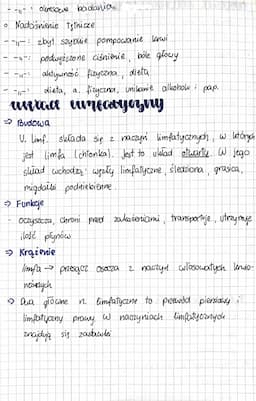 - -〃- : okresowe badania
o Nadciśnienie Tętnicze
- -〃- : zbyt szybkie pompowanie krwi
- -〃- : podwyższone ciśnienie, bóle głowy
- -〃- : aktywność fizyczna, dieta
- -〃- : dieta, a. fizyczna, unikanie alkoholu i pap.
układ limfatyczny
⇒ Budowa
U. limf. składa się z naczyń limfatycznych, w których
jest limfa (chłonka). Jest to układ otwarty. W jego
skład wchodzą: węzły limfatyczne, śledziona, grasica,
migdałki podniebienne.
⇒ Funkcje
- oczyszcza, chroni przed zakażeniami, transportuje, utrzymuje
ilość płynów
⇒ Krążenie
limfa → przesącz osocza z naczyń włosowatych krwio-
nośnych
⇒ Dwa główne n. limfatyczne to przewód piersiowy i
limfatyczny prawy. W naczyniach limfatycznych
znajdują się zastawki